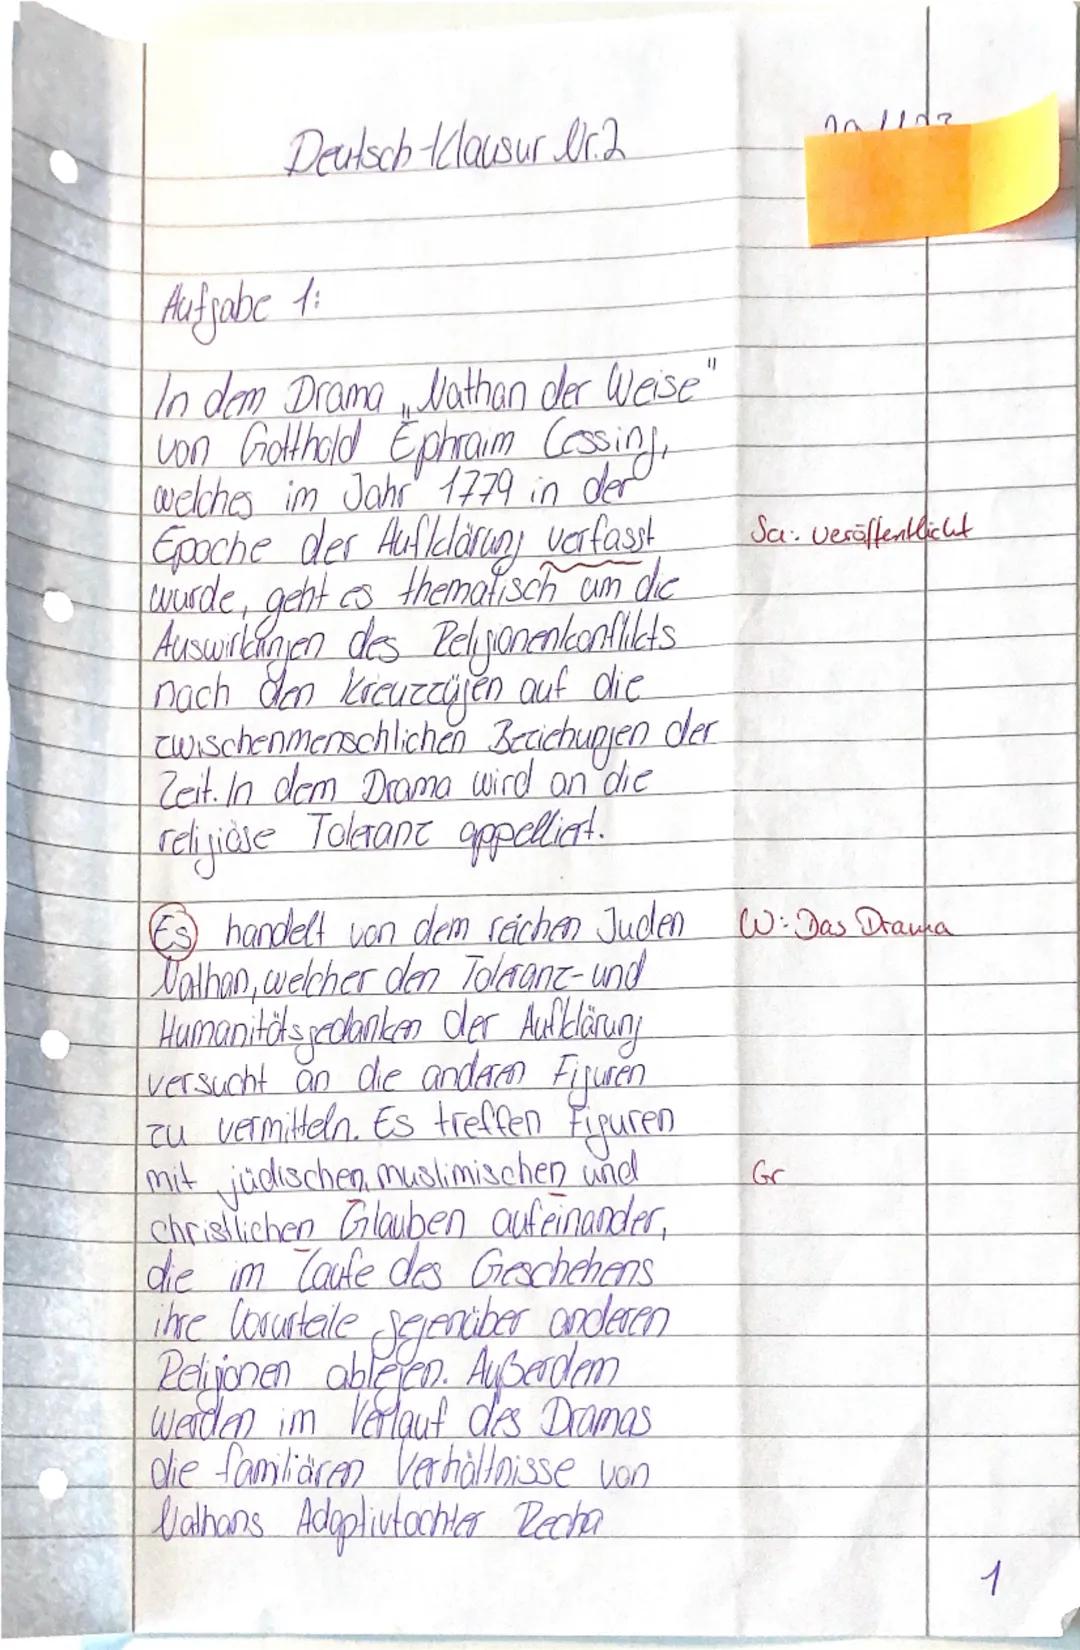 Deutsch-Klausur Nr.2
Aufgabe 1:
In dem Drama „Nathan der Weise"
von Gotthold Ephraim Lessing,
welches im Jahr 1779 in der
Epoche der Aufklärung verfasst
Sa: veröffentlicht
wurde, geht es thematisch um die
Auswirkungen des Religionenkonflikts
nach den Kreuzzügen auf die
zwischenmenschlichen Beziehungen der
Zeit. In dem Drama wird an die
religiöse Toleranz appelliert.
Es handelt von dem reichen Juden
W: Das Drama
Nathan, welcher den Toleranz- und
Humanitätsgedanken der Aufklärung
versucht an die anderen Figuren
zu vermitteln. Es treffen Figuren
mit jüdischen, muslimischen und
Gr
christlichen Glauben aufeinander,
die im Laufe des Geschehens
ihre Vorurteile gegenüber anderen
Religionen ablegen. Außerdem
werden im Verlauf des Dramas
die familiären Verhältnisse von
Nathans Adoptivtochter Recha
1